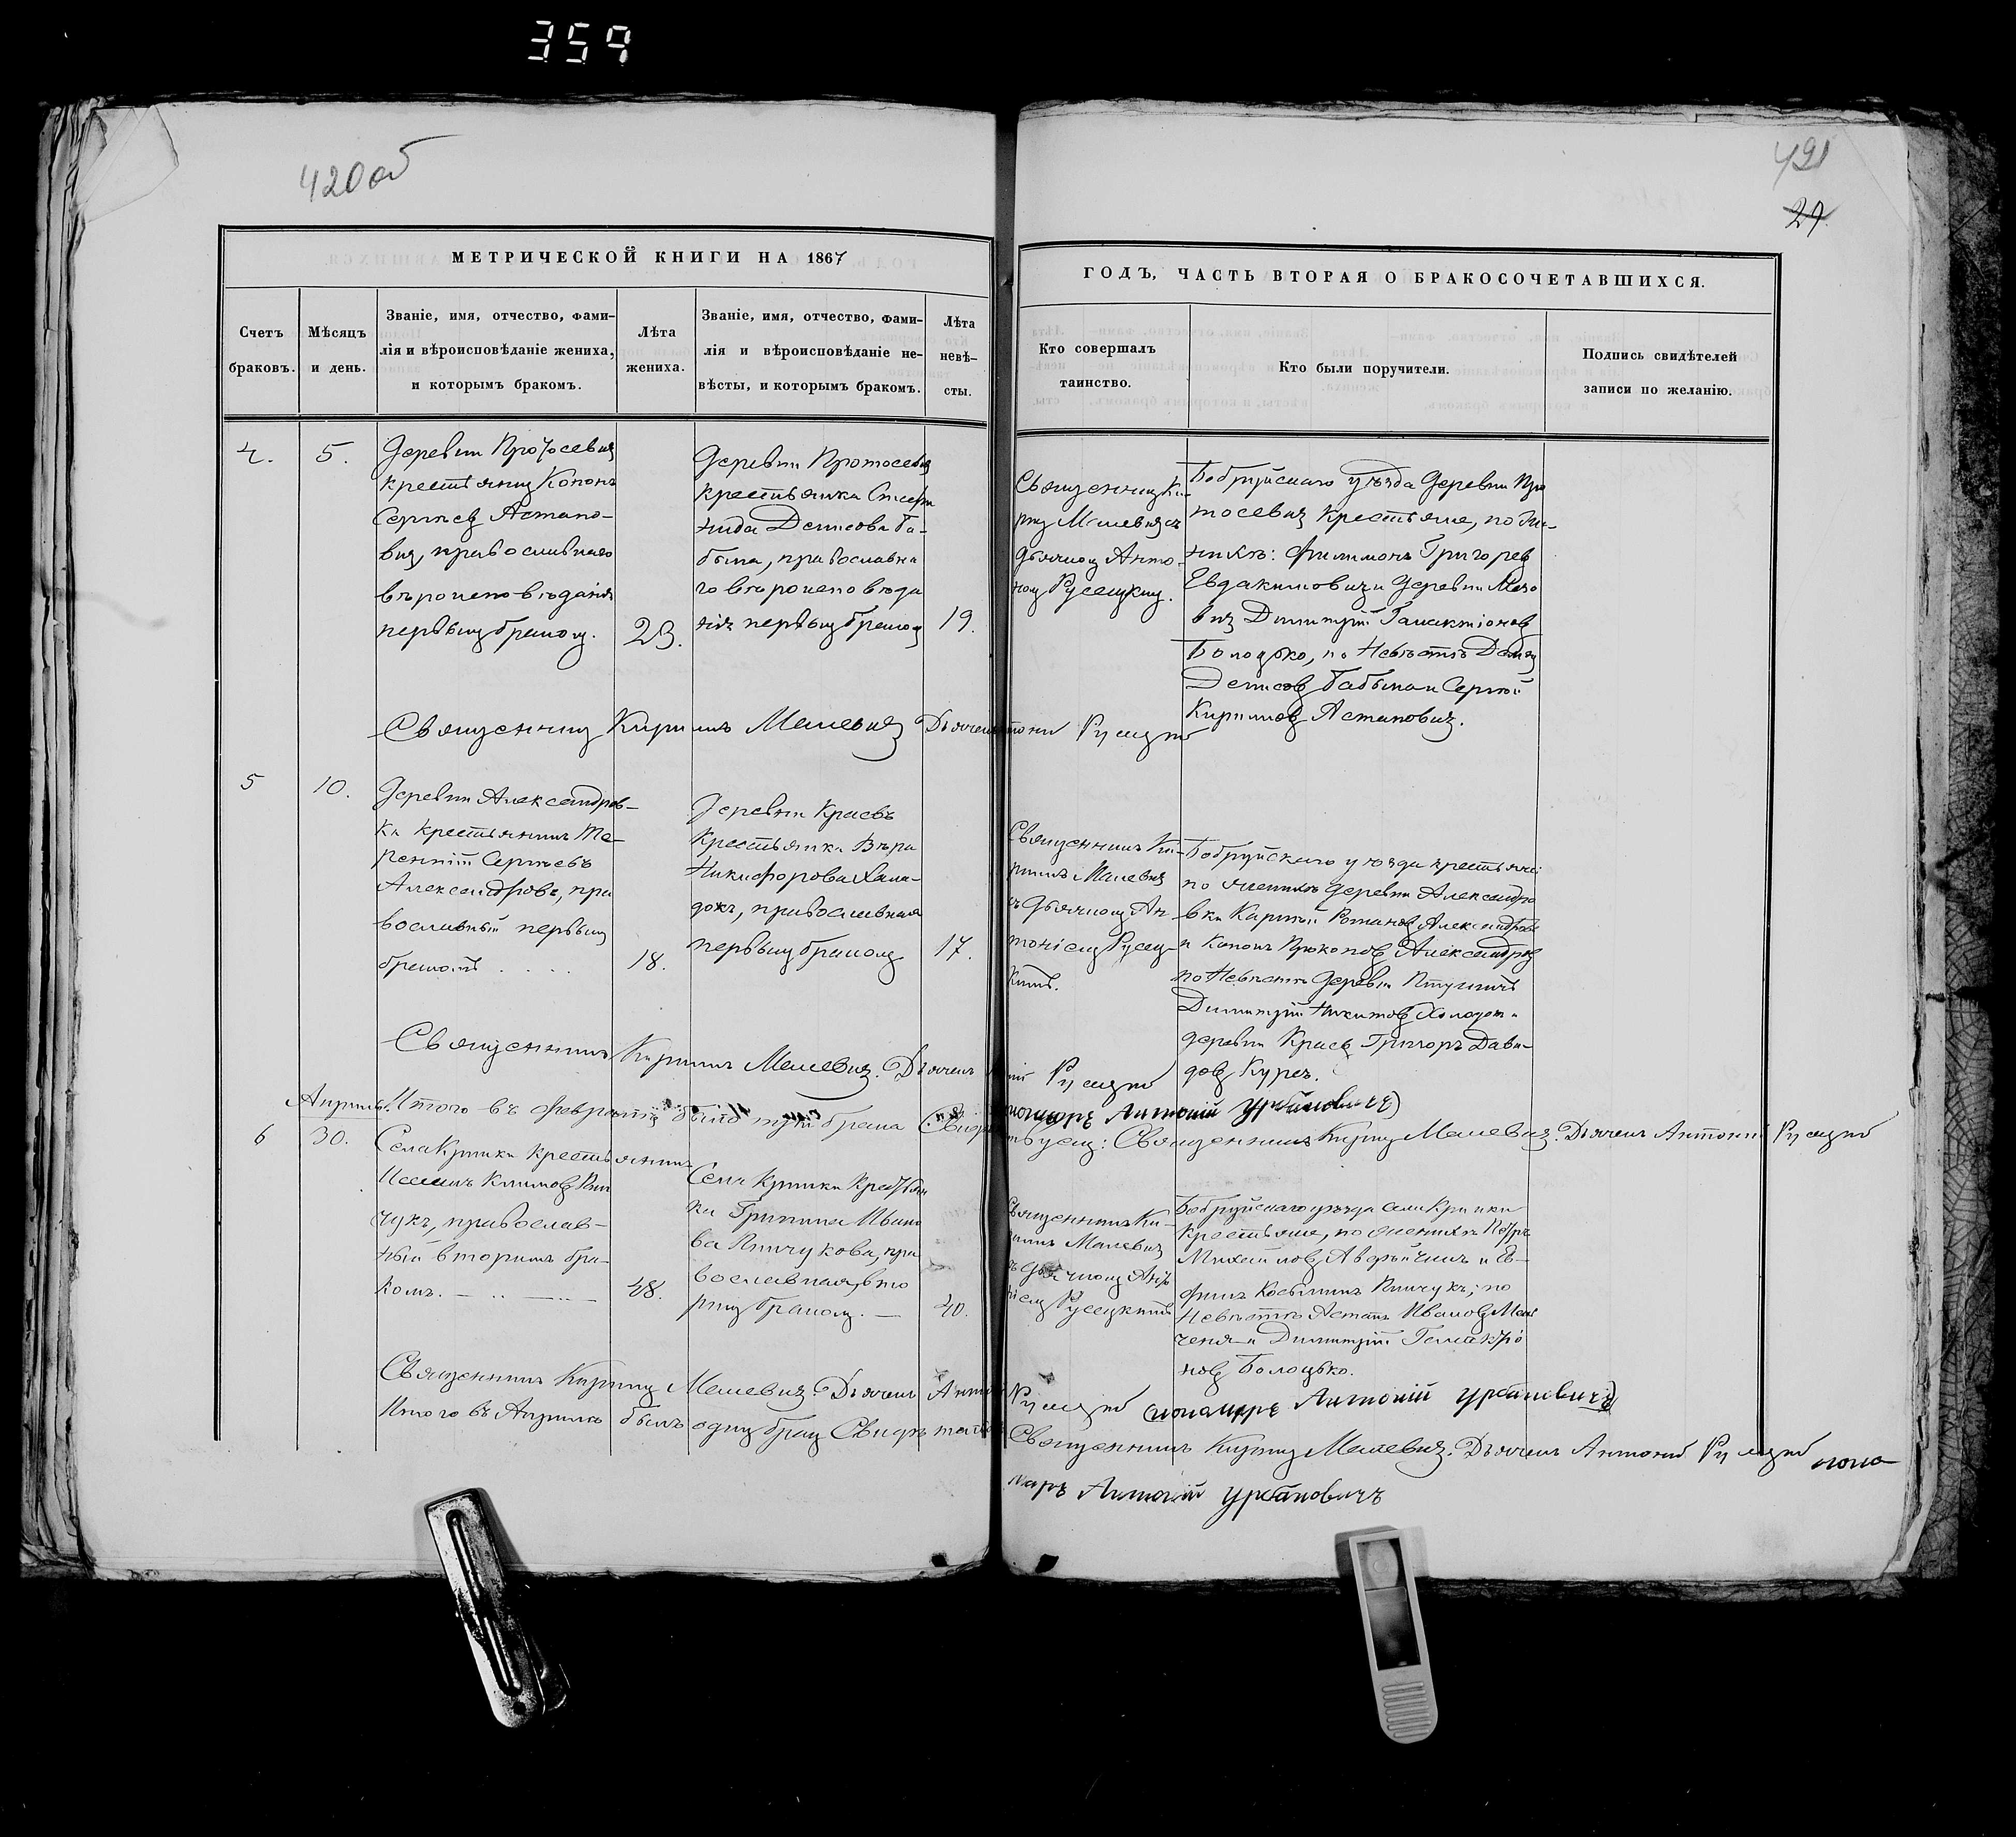 359
420об
421
29.
МЕТРИЧЕСКОЙ КНИГИ НА 1867
ГОДЪ, ЧАСТЬ ВТОРАЯ О БРАКОСОЧЕТАВШИХСЯ.
Счетъ
браковъ.
Мѣсяцъ
и день.
Званіе, имя, отчество, фами-
лія и вѣроисповѣданіе жениха,
и которымъ бракомъ.
Лѣта
жениха.
Званіе, имя, отчество, фами-
лія и вѣроисповѣданіе не-
вѣсты, и которымъ бракомъ.
Лѣта
невѣ-
сты.
Кто совершалъ
таинство.
Кто были поручители.
Подпись свидѣтелей
записи по желанію.
4.
5.
Деревни Протосевичъ
крестьянинъ Кононъ
Сергѣевъ Астапо-
вичъ, православнаго
вѣроисповѣданія
первымъ бракомъ.
23.
Деревни Протосевичъ
крестьянка
нида Денисова Ба-
быма, православна
го вѣроисповѣда
нія первымъ бракомъ
19.
Священникъ Ки-
рилъ Малевичъ съ
дьячкомъ Анто-
номъ Русецкимъ.
Бобруйскаго уѣзда деревни Про
тосевичъ крестьяне, по же-
нихѣ: Филимонъ Григорьевъ
Евдакимовичъ и деревни
Димитрій Галактіоновъ
Болоцько, по Невѣстѣ
Денисовъ Бабыма и Сергѣй
Кириловъ Астаповичъ.
Священникъ Кирилъ Малевичъ Дьячекъ Антоній Русецкій
5
10.
Деревни Александров-
ки крестьянинъ Те-
рентій Сергѣевъ
Александровъ, пра
вославный первымъ
бракомъ . . . .
18.
Деревни Краевъ
крестьянка Вѣра
Никифорова Хала-
докъ, православная
первымъ бракомъ
17.
Священникъ Ки-
рилъ Малевичъ
съ дьячкомъ Ан
тоніемъ Русец-
кимъ.
Бобруйскаго уѣзда крестьяне
по женихѣ деревни Александро
вки Карпъ Романовъ Александровъ
и Кононъ Прокоповъ Александровъ
по Невѣстѣ деревни Птушичъ
Димитрій Никитовъ Холодок и
деревни Краевъ Григоръ Дави-
довъ Курec.
Священникъ Кирилъ Малевичъ. Дьячекъ Антоній Русецкій
пономаръ Антоній Урбановичъ)
Апрѣль. Итого въ Февралѣ было три брака Свидѣтельствуемъ: Священникъ Кирилъ Малевичъ. Дьячекъ Антоній Русецкій
6
30.
Села Крюки крестьянинъ
Климовъ Пин
чукъ, православ-
ный вторымъ бра-
комъ.
48.
Села Крюки крестьян
ка Грипина Ивано
ва Пинчукова, пра
вославная, вто
рымъ бракомъ. —
40.
Священникъ Ки-
рилъ Малевичъ
съ дьячкомъ Анто
ніемъ Русецкимъ
Бобруйскаго уѣзда села Крюки
крестьяне, по женихѣ Петръ
Михайловъ и Е-
фимъ Косьминъ Пинчукъ; по
Невѣстѣ Астапъ Ивановъ
и Димитрій Галактіо
новъ Болоцько.
Священникъ Кирилъ Малевичъ. Дьячекъ Антоній Русецкій (пономаръ Антоній Урбановичъ)
Итого въ Апрѣлѣ былъ одинъ бракъ Свидѣтельствуемъ Священникъ Кирилъ Малевичъ. Дьячекъ Антоній Русецкій поно-
маръ Антоній Урбановичъ